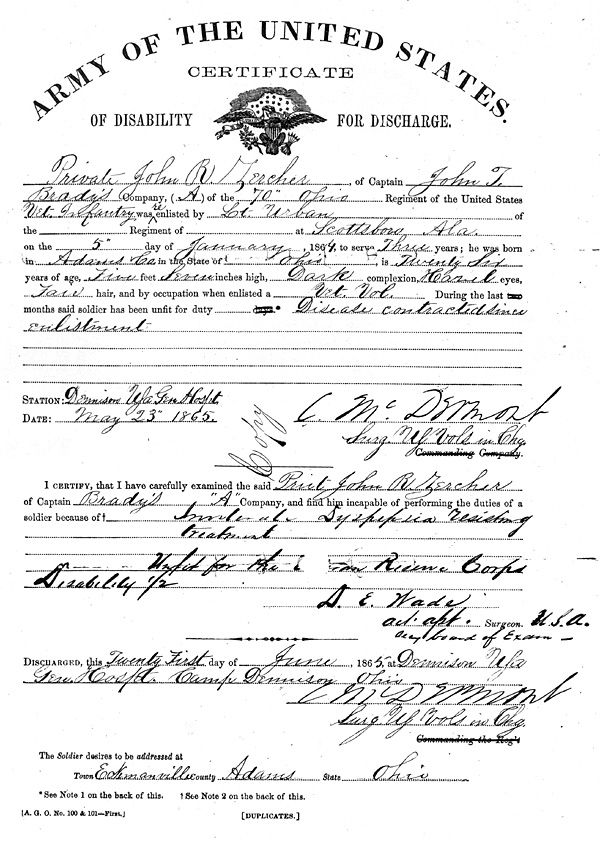 ARMY OF THE UNITED STATES.
CERTIFICATE
OF DISABILITY FOR DISCHARGE.
Private John R. Zercher, of Captain John T.
Brady's Company, (A) of the 70" Ohio Regiment of the United States
Vet. Infantry was re enlisted by Lt. Urban of
the Regiment of at Scottsboro Ala.
on the 5" day of January, 1864, to serve Three years; he was born
in Adams Co in the State of Ohio is Twenty Six
years of age, Five feet Seven inches high, Dark complexion, Hazel eyes,
Fair hair, and by occupation when enlisted a Vet. Vol. During the last two
months said soldier has been unfit for duty days.* Disease contracted since
enlistment
STATION: Dennison U.S.a Gen Hospt.
DATE: May 23" 1865.
C. McDermont
Surg U.S. Vols in Chg
Commanding Company.
Copy
I CERTIFY, that I have carefully examined the said Privt John R. Zercher
of Captain Brady's "A" Company, and find him incapable of performing the duties of a
soldier because of† Dyspepsia resisting
treatment
Unfit for the Corps
Disability 1/2
D. E. Wade
act. apt. Surgeon. U.S.A.
board of Exam
DISCHARGED, this Twenty First day of June, 1865, at Dennison U.S.a
Gen. Hospt. Camp Dennison Ohio
C McDermont
Surg U.S. Vols in Chg
Commanding the Reg't
The Soldier desires to be addressed at
Town Eckmanville County Adams State Ohio
*See Note 1 on the back of this. †See Note 2 on the back of this.
[A. G. O. No. 100 & 101—First.] [DUPLICATES.]